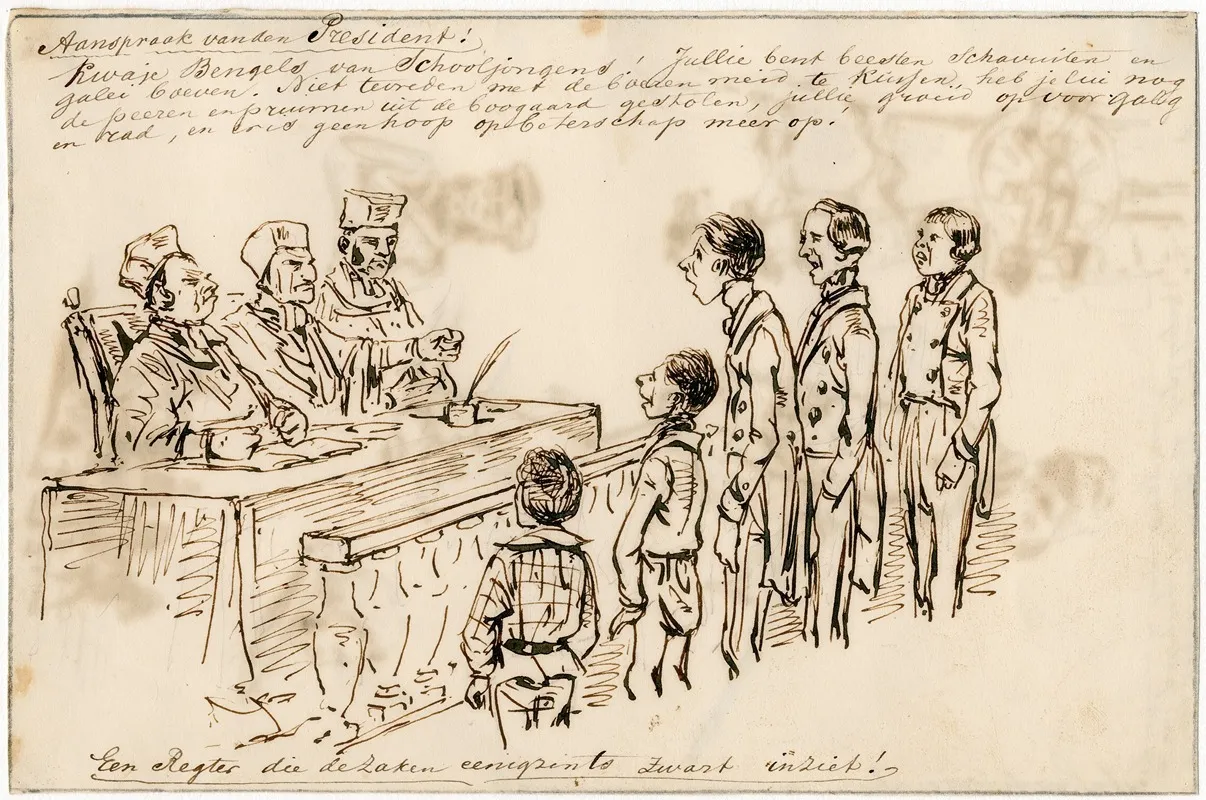 Aanspraak van den President!
Kwaje Bengels van Schooljongens! Jullie bent beesten schavuiten en
galei boeven. Niet tevreden met de boeren meid te kussen, heb jelui nog
de peeren en pruimen uit de boogaard gestolen, jullie groeid op voor galg
en rad, en er is geen hoop op beterschap meer op!
Een Regter die de zaken eenigzints zwart inziet!